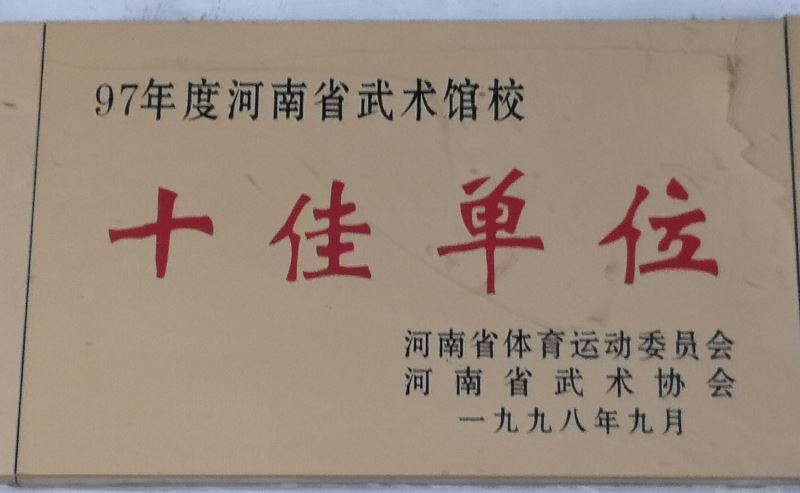 97年度河南省武术馆校
十佳单位
河南省体育运动委员会
河南省武术协会
一九九八年九月